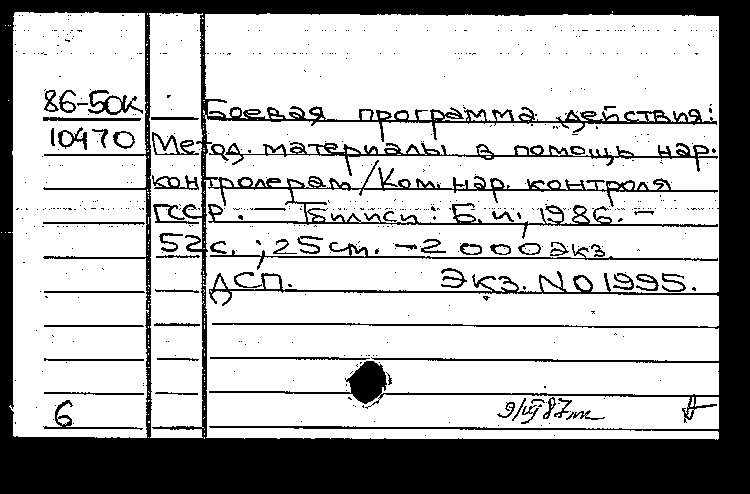 86-50к Боевая программа действия:
10470 Метод. материалы в помощь нар.
контролерам/Ком. нар. контроля
ГССР. — Тбилиси: Б.и., 1986. —
52с. ; 25см. — 2000экз.
ДСП. Экз. N01995.
6